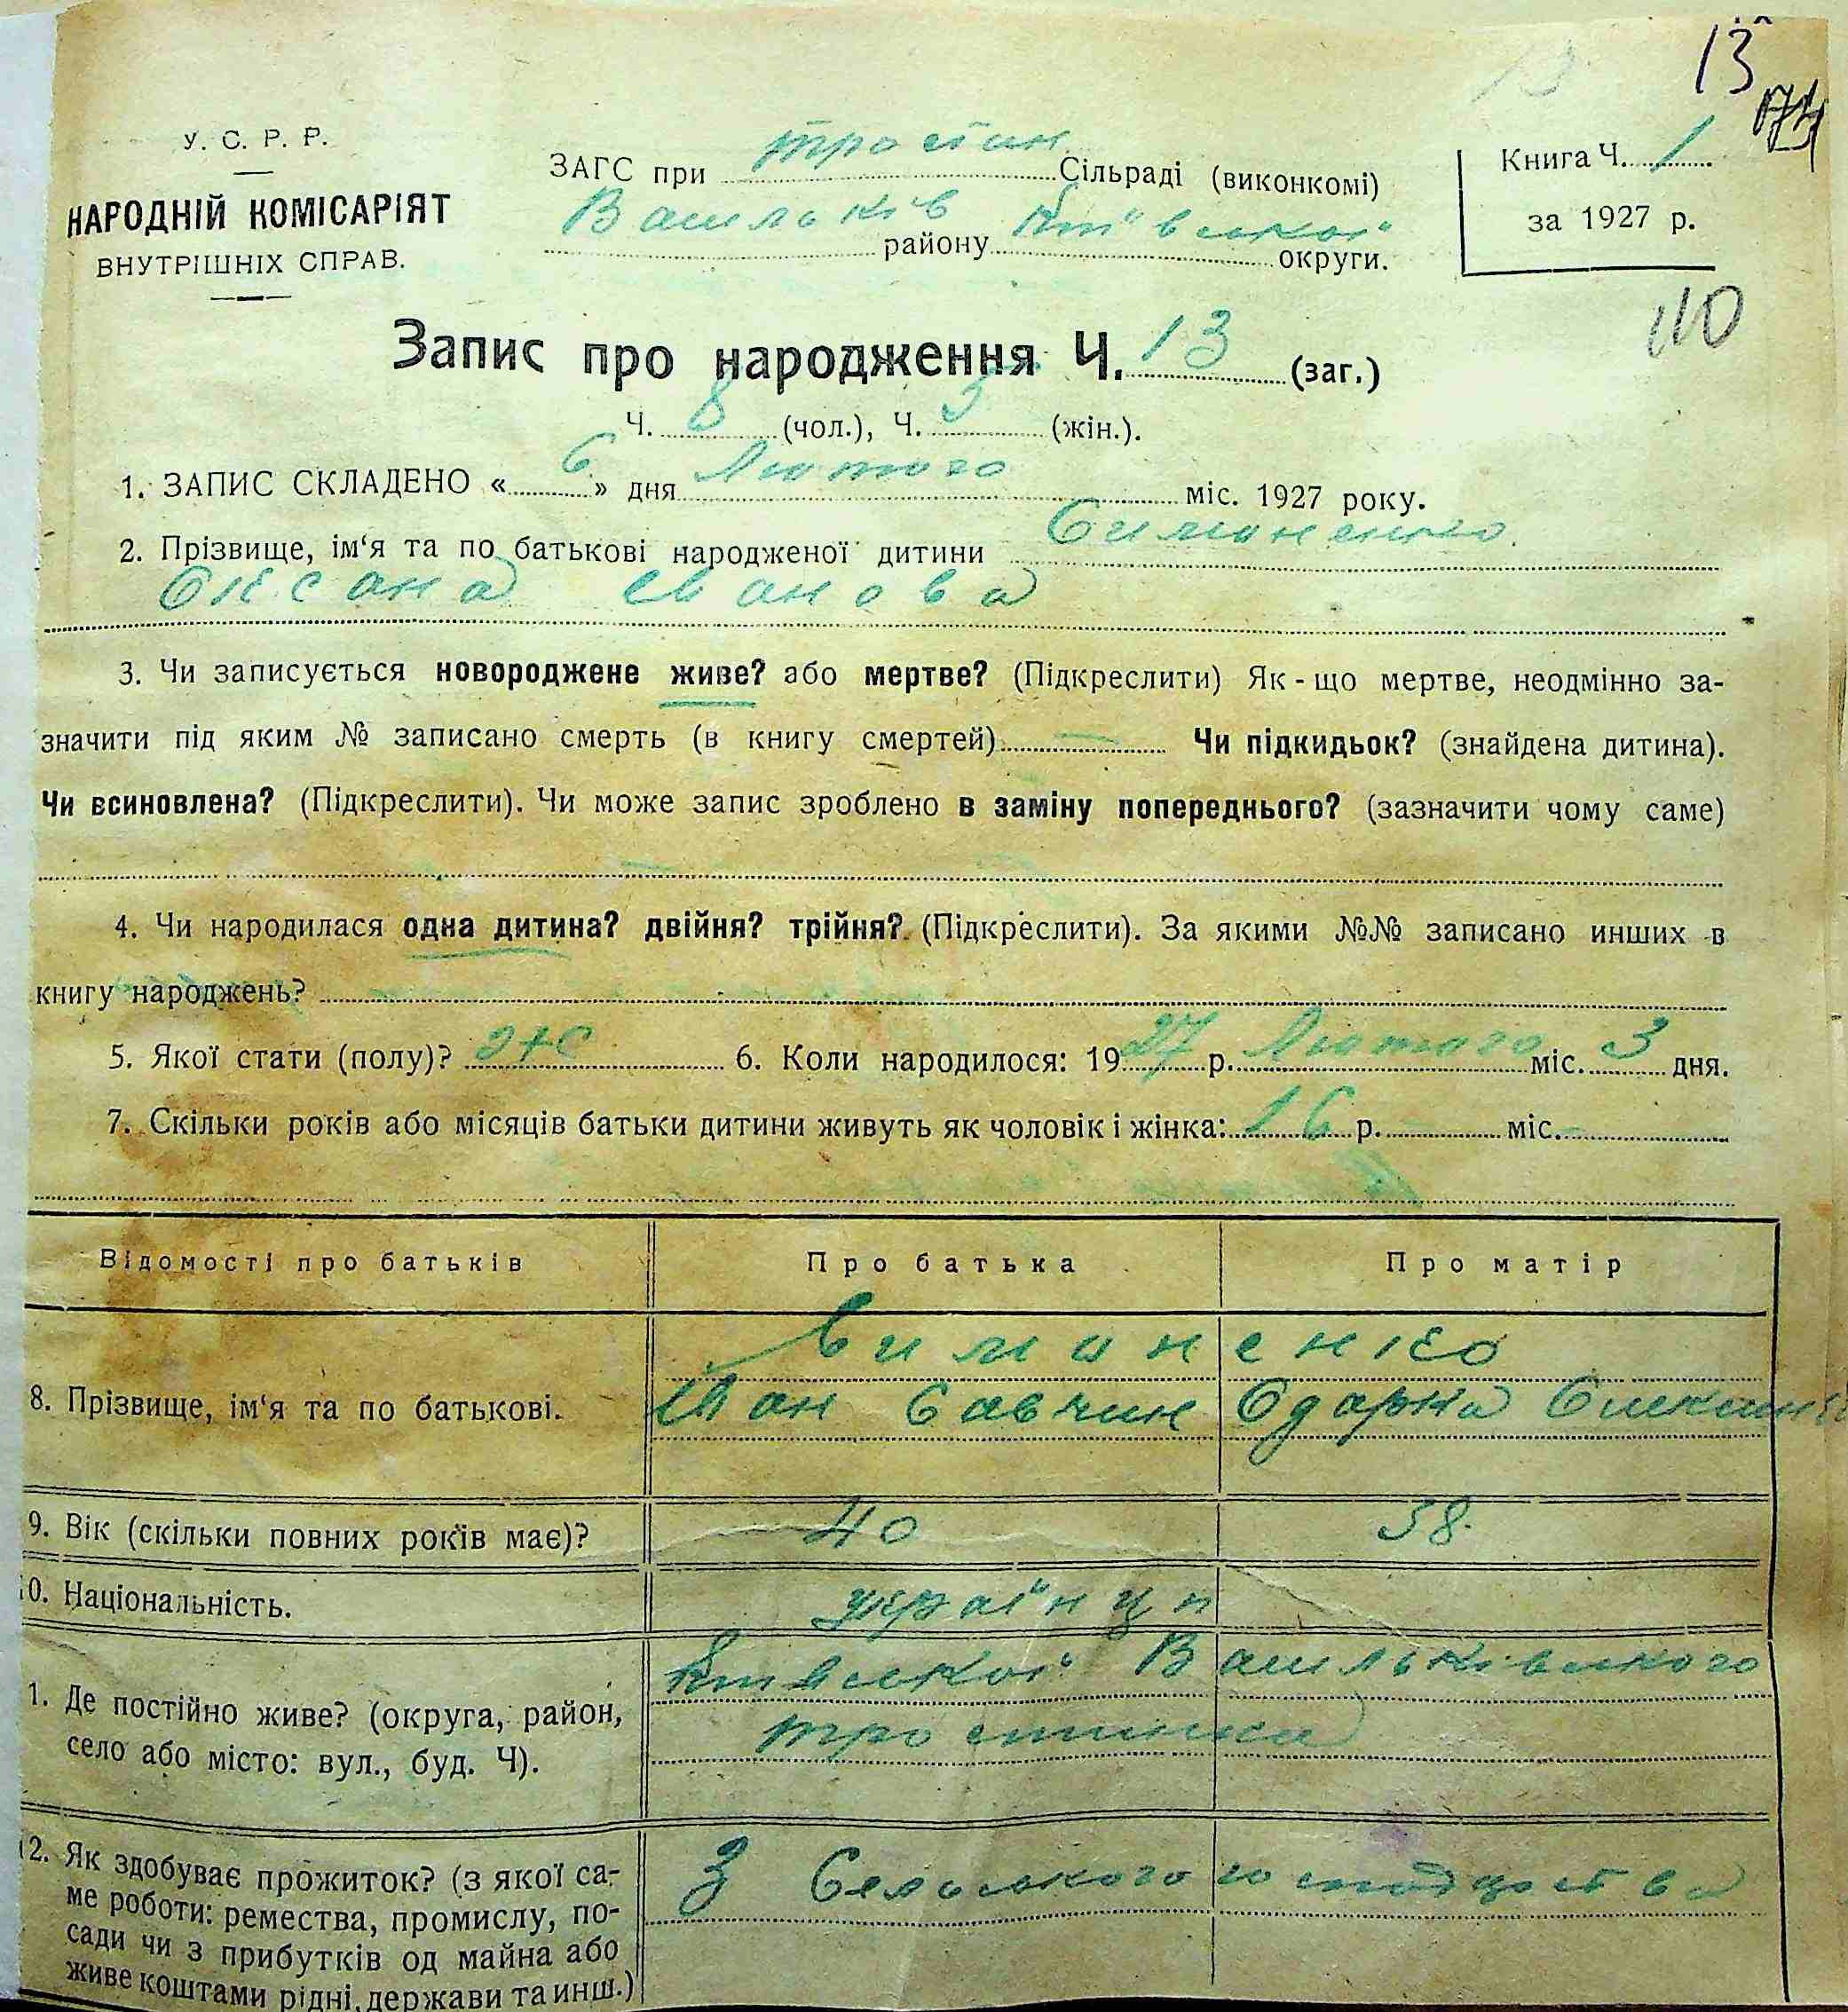 13
У. С. Р. Р.
НАРОДНІЙ КОМІСАРІЯТ
ВНУТРІШНІХ СПРАВ.
ЗАГС при Тростин Сільраді (виконкомі)
Васильків району Київської округи.
Книга Ч. 1
за 1927 р.
110
Запис про народження Ч. 13 (заг.)
Ч. 8 (чол.), Ч. 5 (жін.).
1. ЗАПИС СКЛАДЕНО « 6 » дня Лютого міс. 1927 року.
2. Прізвище, ім‘я та по батькові народженої дитини Симоненко
Оксана Іванова
3. Чи записується новороджене живе? або мертве? (Підкреслити) Як - що мертве, неодмінно за-
значити під яким № записано смерть (в книгу смертей) — Чи підкидьок? (знайдена дитина).
Чи всиновлена? (Підкреслити). Чи може запис зроблено в заміну попереднього? (зазначити чому саме)
4. Чи народилася одна дитина? двійня? трійня? (Підкреслити). За якими №№ записано инших в
книгу народжень?
5. Якої стати (полу)? жс 6. Коли народилося: 1927 р. Лютого міс. 3 дня.
7. Скільки років або місяців батьки дитини живуть як чоловік і жінка: 16 р. — міс. —
Відомості про батьків Про батька Про матір
Симоненко
8. Прізвище, ім‘я та по батькові. Іван Савчин Одарка
9. Вік (скільки повних років має)? 40 38
10. Національність. українци
Київської Васильківського
1. Де постійно живе? (округа, район,
село або місто: вул., буд. Ч). Тростинка
12. Як здобуває прожиток? (з якої са-
ме роботи: ремества, промислу, по-
сади чи з прибутків од майна або
живе коштами рідні, держави та инш.)
З Сельського господарства